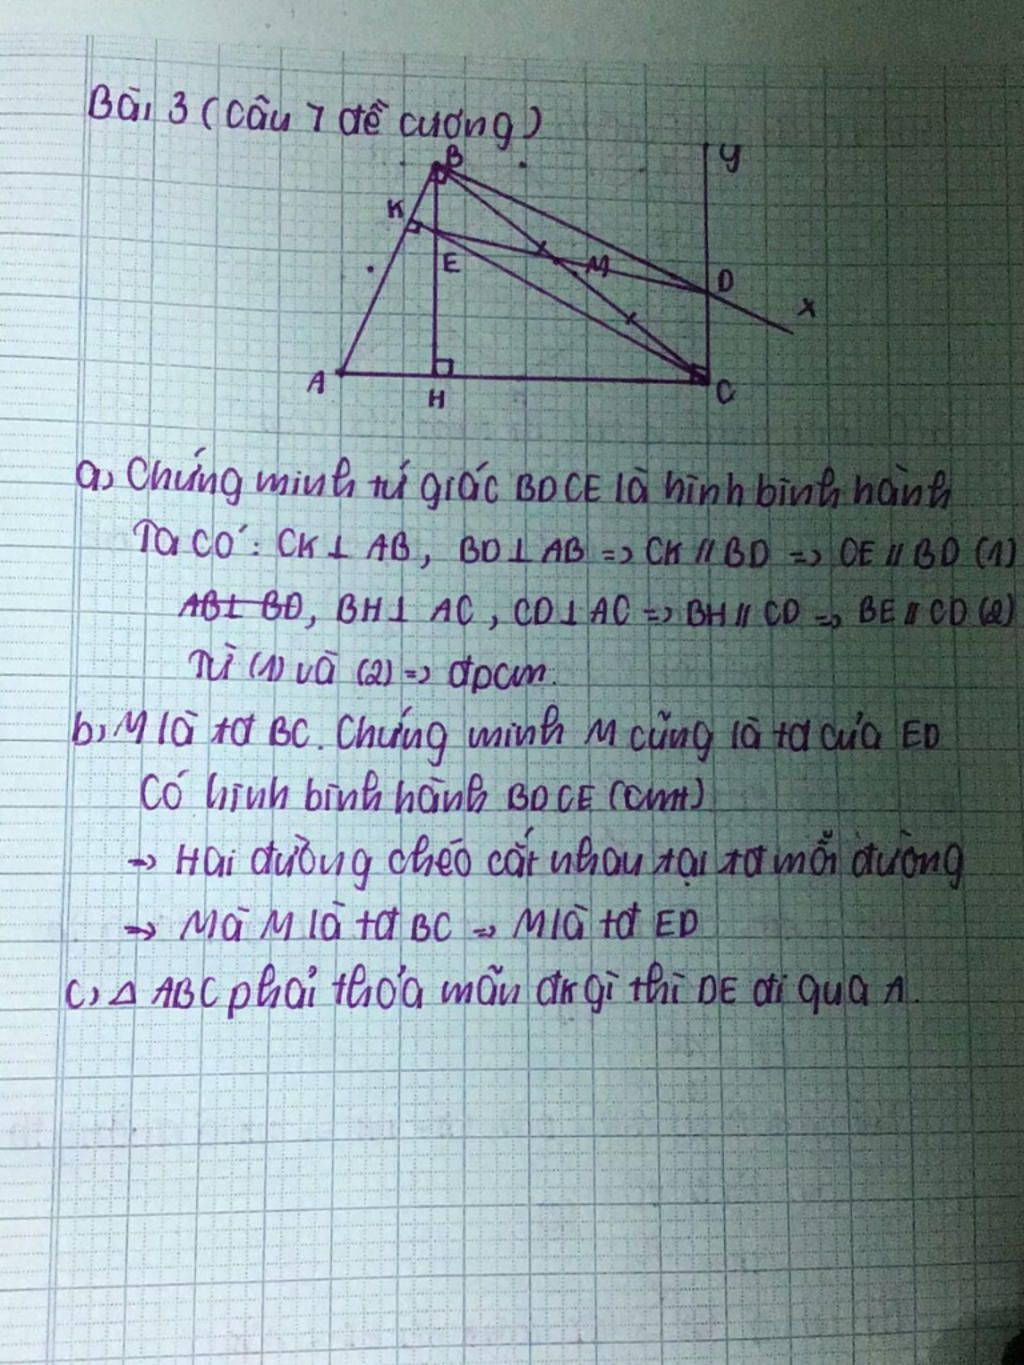 Bài 3 (Câu 7 đề cương)
B
y
K
E
M
D
x
A
H
C
a, Chứng minh tứ giác BDCE là hình bình hành
Ta có: CK ⊥ AB, BD ⊥ AB => CK // BD => CE // BD (1)
AB ⊥ BD, BH ⊥ AC, CD ⊥ AC => BH // CD => BE // CD (2)
Từ (1) và (2) => đpcm.
b, M là tđ BC. Chứng minh M cũng là tđ của ED
Có hình bình hành BDCE (cmt)
-> Hai đường chéo cắt nhau tại tđ mỗi đường
-> Mà M là tđ BC => M là tđ ED
c, Δ ABC phải thỏa mãn đk gì thì DE đi qua A.